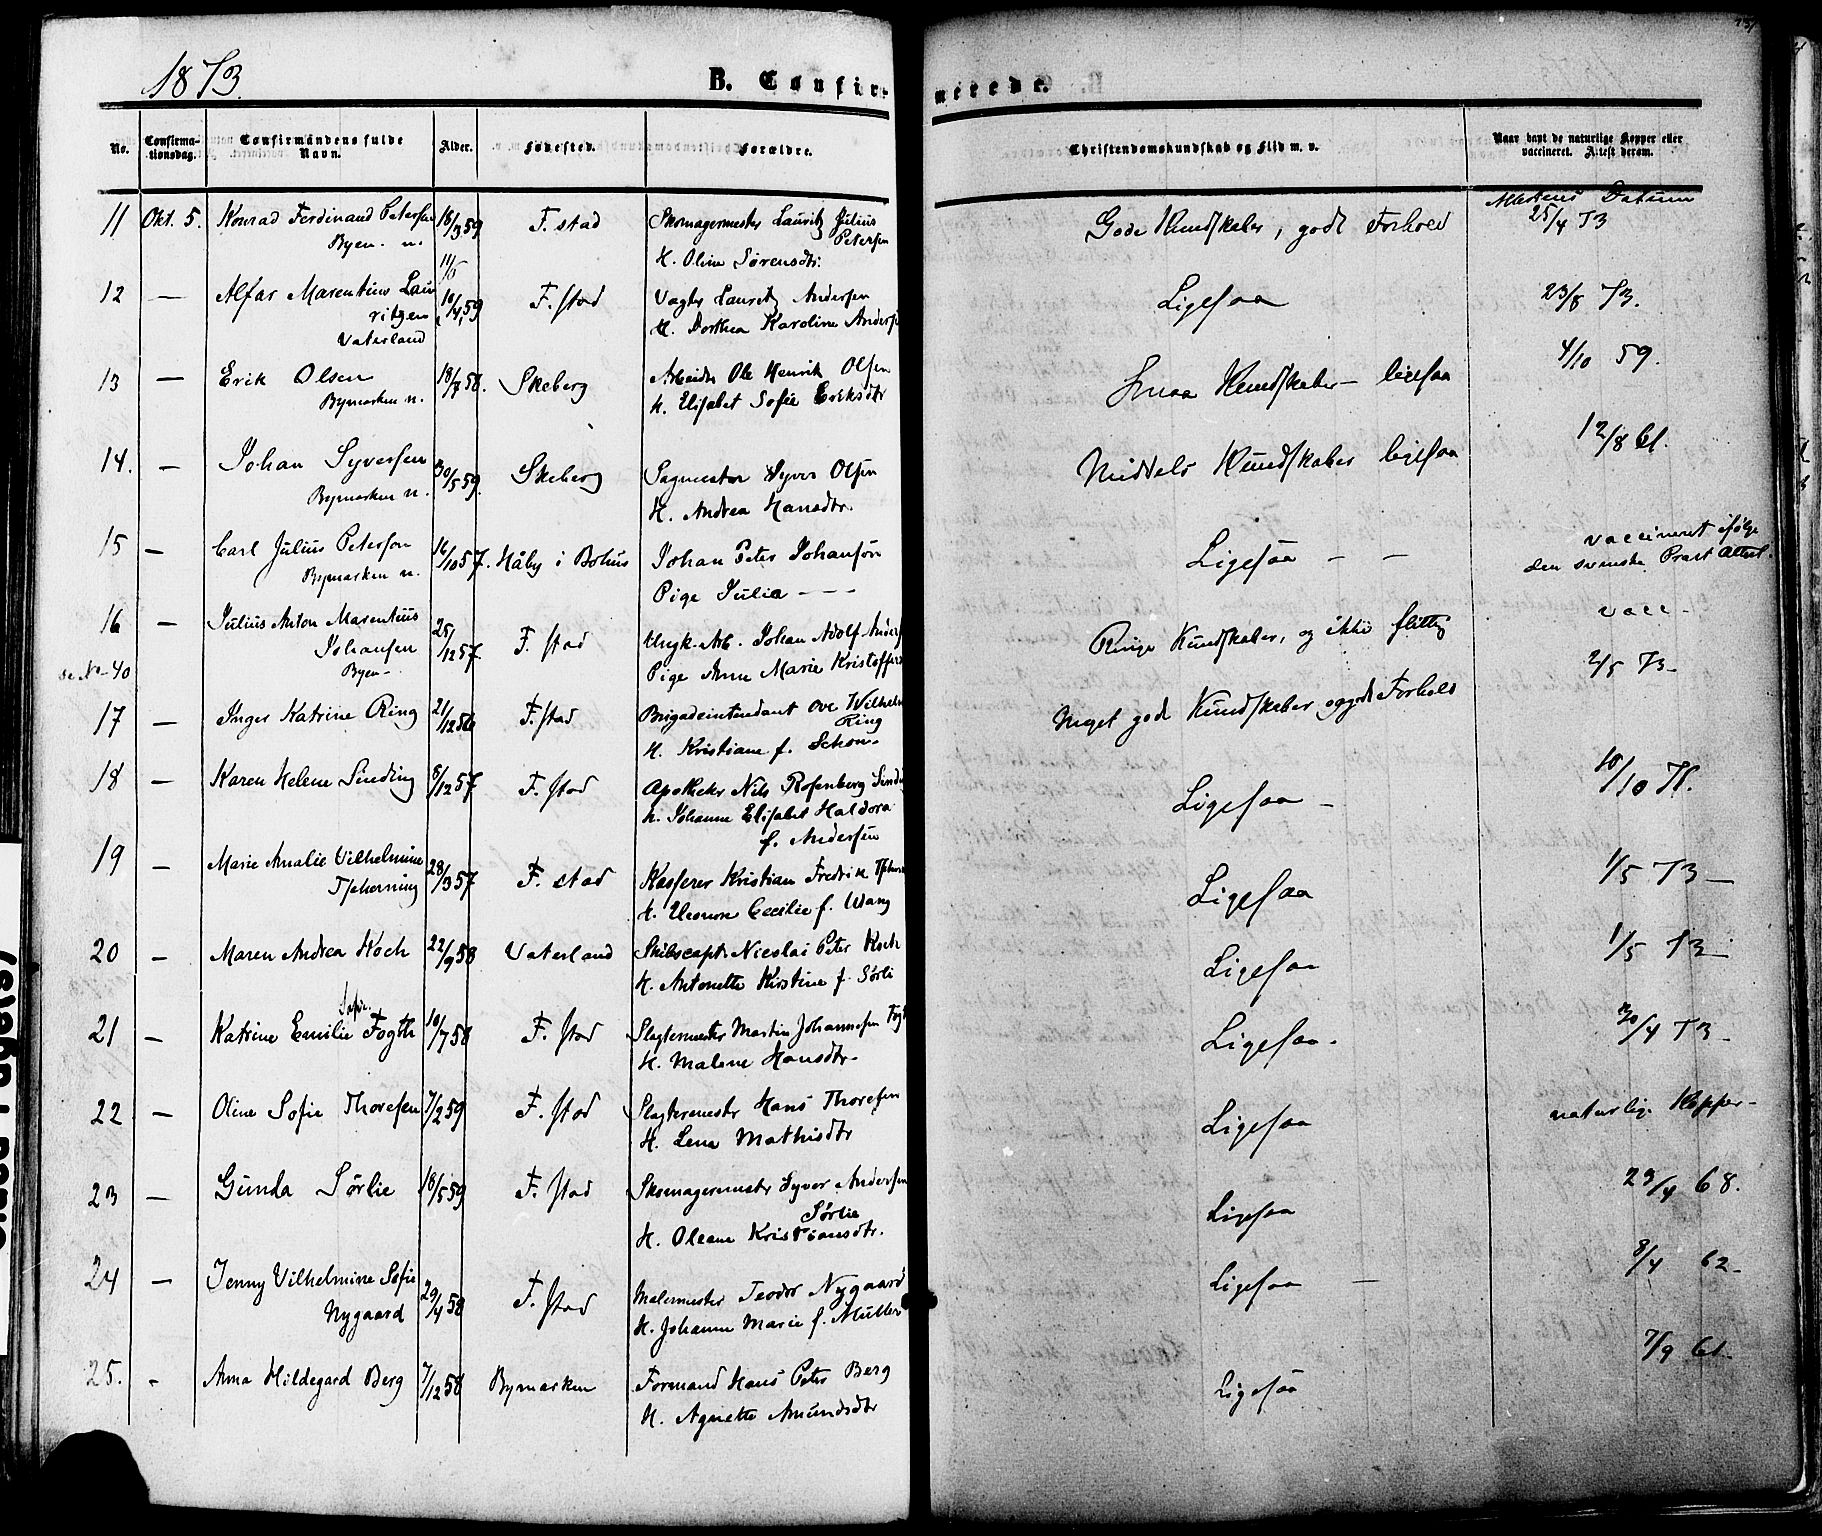 1873.
B. Confirmerede.
No.
Confirmationsdag.
Confirmandens fulde Navn.
Alder.
Fødested.
Forældre.
Christendomskundskab og Flid m. v.
Naar havt de naturlige Kopper eller vaccineret. Attest derom.
Attestens Datum
11 Okt. 5. Konrad Ferdinand Petersen 18/3 59 F. stad Skomagermester Lauritz Julius Gode Kundskaber, godt Forhold 25/4 73
Byen. n. Petersen
H. Oline Sørensdtr.
12 — Alfar Marentius Lau 10/4 59 F. stad Vagter Lauritz Andersen Ligesaa 23/8 73.
ritzen H. Dorthea Karoline Anders
Vaterland
13 — Erik Olsen 18/7 58. Skeberg Arbeider Ole Henrik Olsen Smaa Kundskaber — ligesaa 4/10 59.
Bymarken n. H. Elisabet Sofie Eriksdtr
14. — Johan Syversen 30/5 59. Skeberg Sagmester Syver Olsen Middels Kundskaber ligesaa 12/8 61.
Bymarken n. H. Andrea Hansdtr.
15 — Carl Julius Peterson 16/10 57. Håby i Bohus Johan Peter Johanson Ligesaa — — vaccineret ifølge
Bymarken n. Pige Julia - - - den svenske Præst Attest.
16 — Julius Anton Marentius 25/12 57 F. stad Johan Adolf Anders Ringe Kundskaber, og ikke flittig vacc -
Johansen Pige Anne Marie Kristoffers
se No 40 Byen -
17 — Inger Katrine Ring 21/12 56 F. stad Brigadeintendant Ove Wilhelm Meget gode Kundskaber og godt Forhold 2/5 73 -
Ring
H. Kristiane f. Schou -
18 — Karen Helene Sinding 8/12 57 F. stad Apotheker Nils Rosenberg Sindi Ligesaa — 10/10 71.
H. Johanne Elisabet Haldora
f. Andersen
19 — Marie Amalie Vilhelmine 28/3 57 F. stad Kasserer Kristian Fredrik Tschern Ligesaa 1/5 73 —
Tscherning H. Eleonore Cecilie f. Wang
20 — Maren Andrea Koch 22/9 58 Vaterland Skibscapt. Nicolai Peter Koch Ligesaa 1/5 73 —
H. Antonette Kirstine f. Sørli
Sofie
21 — Katrine Emilie Fogth 10/7 58 F. stad Slagtermester Martin Johannesen Fogt Ligesaa. 30/4 73 -
H. Malene Hansdtr.
22 — Oline Sofie Thoresen 7/2 59 F. stad Slagtermester Hans Thoresen Ligesaa naturlige Kopper -
H. Lena Mathisdtr
23 — Gunda Sørlie 18/5 59 F. stad Skomagermester Syver Andersen Ligesaa 29/4 68.
Sørlie
H. Oleane Kristiansdtr.
24 — Jenny Vilhelmine Sofie 29/4 58 F. stad Malermester Teodor Nygaard Ligesaa — 8/4 62 -
Nygaard H. Johanne Marie f. Müller
25. - Anna Hildegard Berg 7/12 58 Bymarken Formand Hans Peter Berg Ligesaa 7/9 61.
H. Agnette Amundsdtr